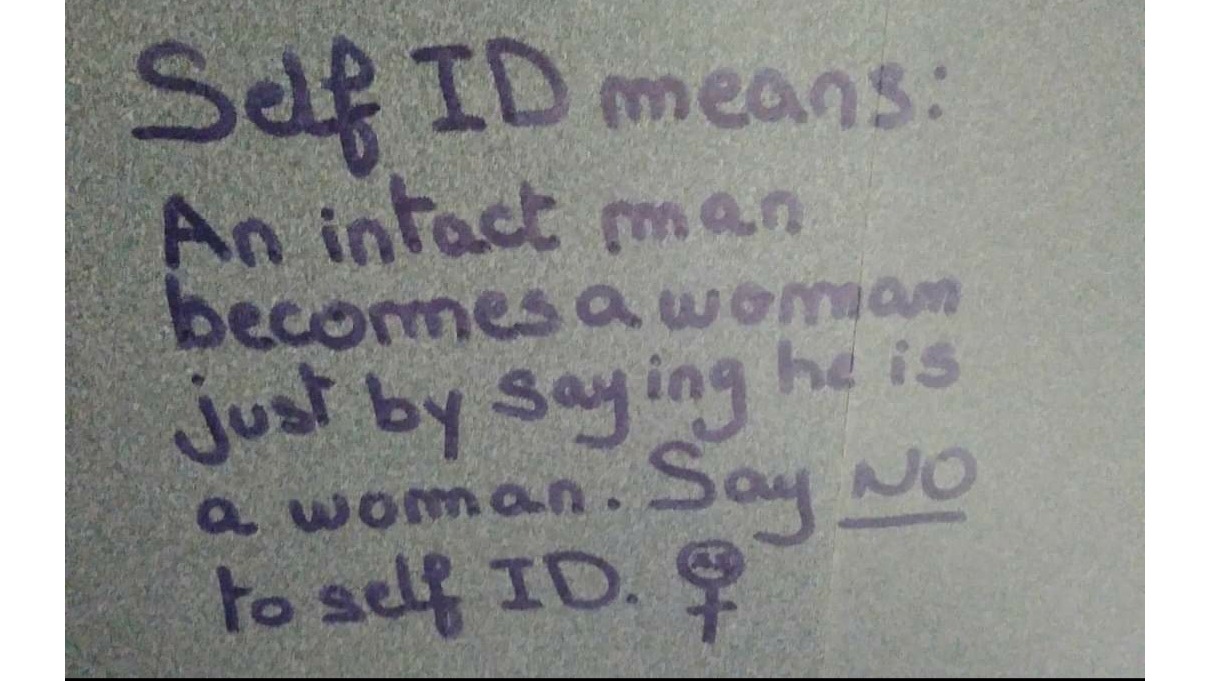 Self ID means:
An intact man
becomes a woman
just by saying he is
a woman. Say NO
to self ID. ♀